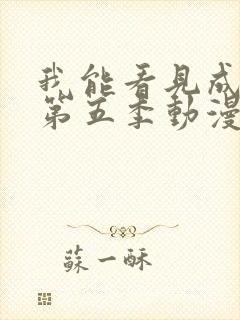 我能看見成
第五季動漫
蘇一酥